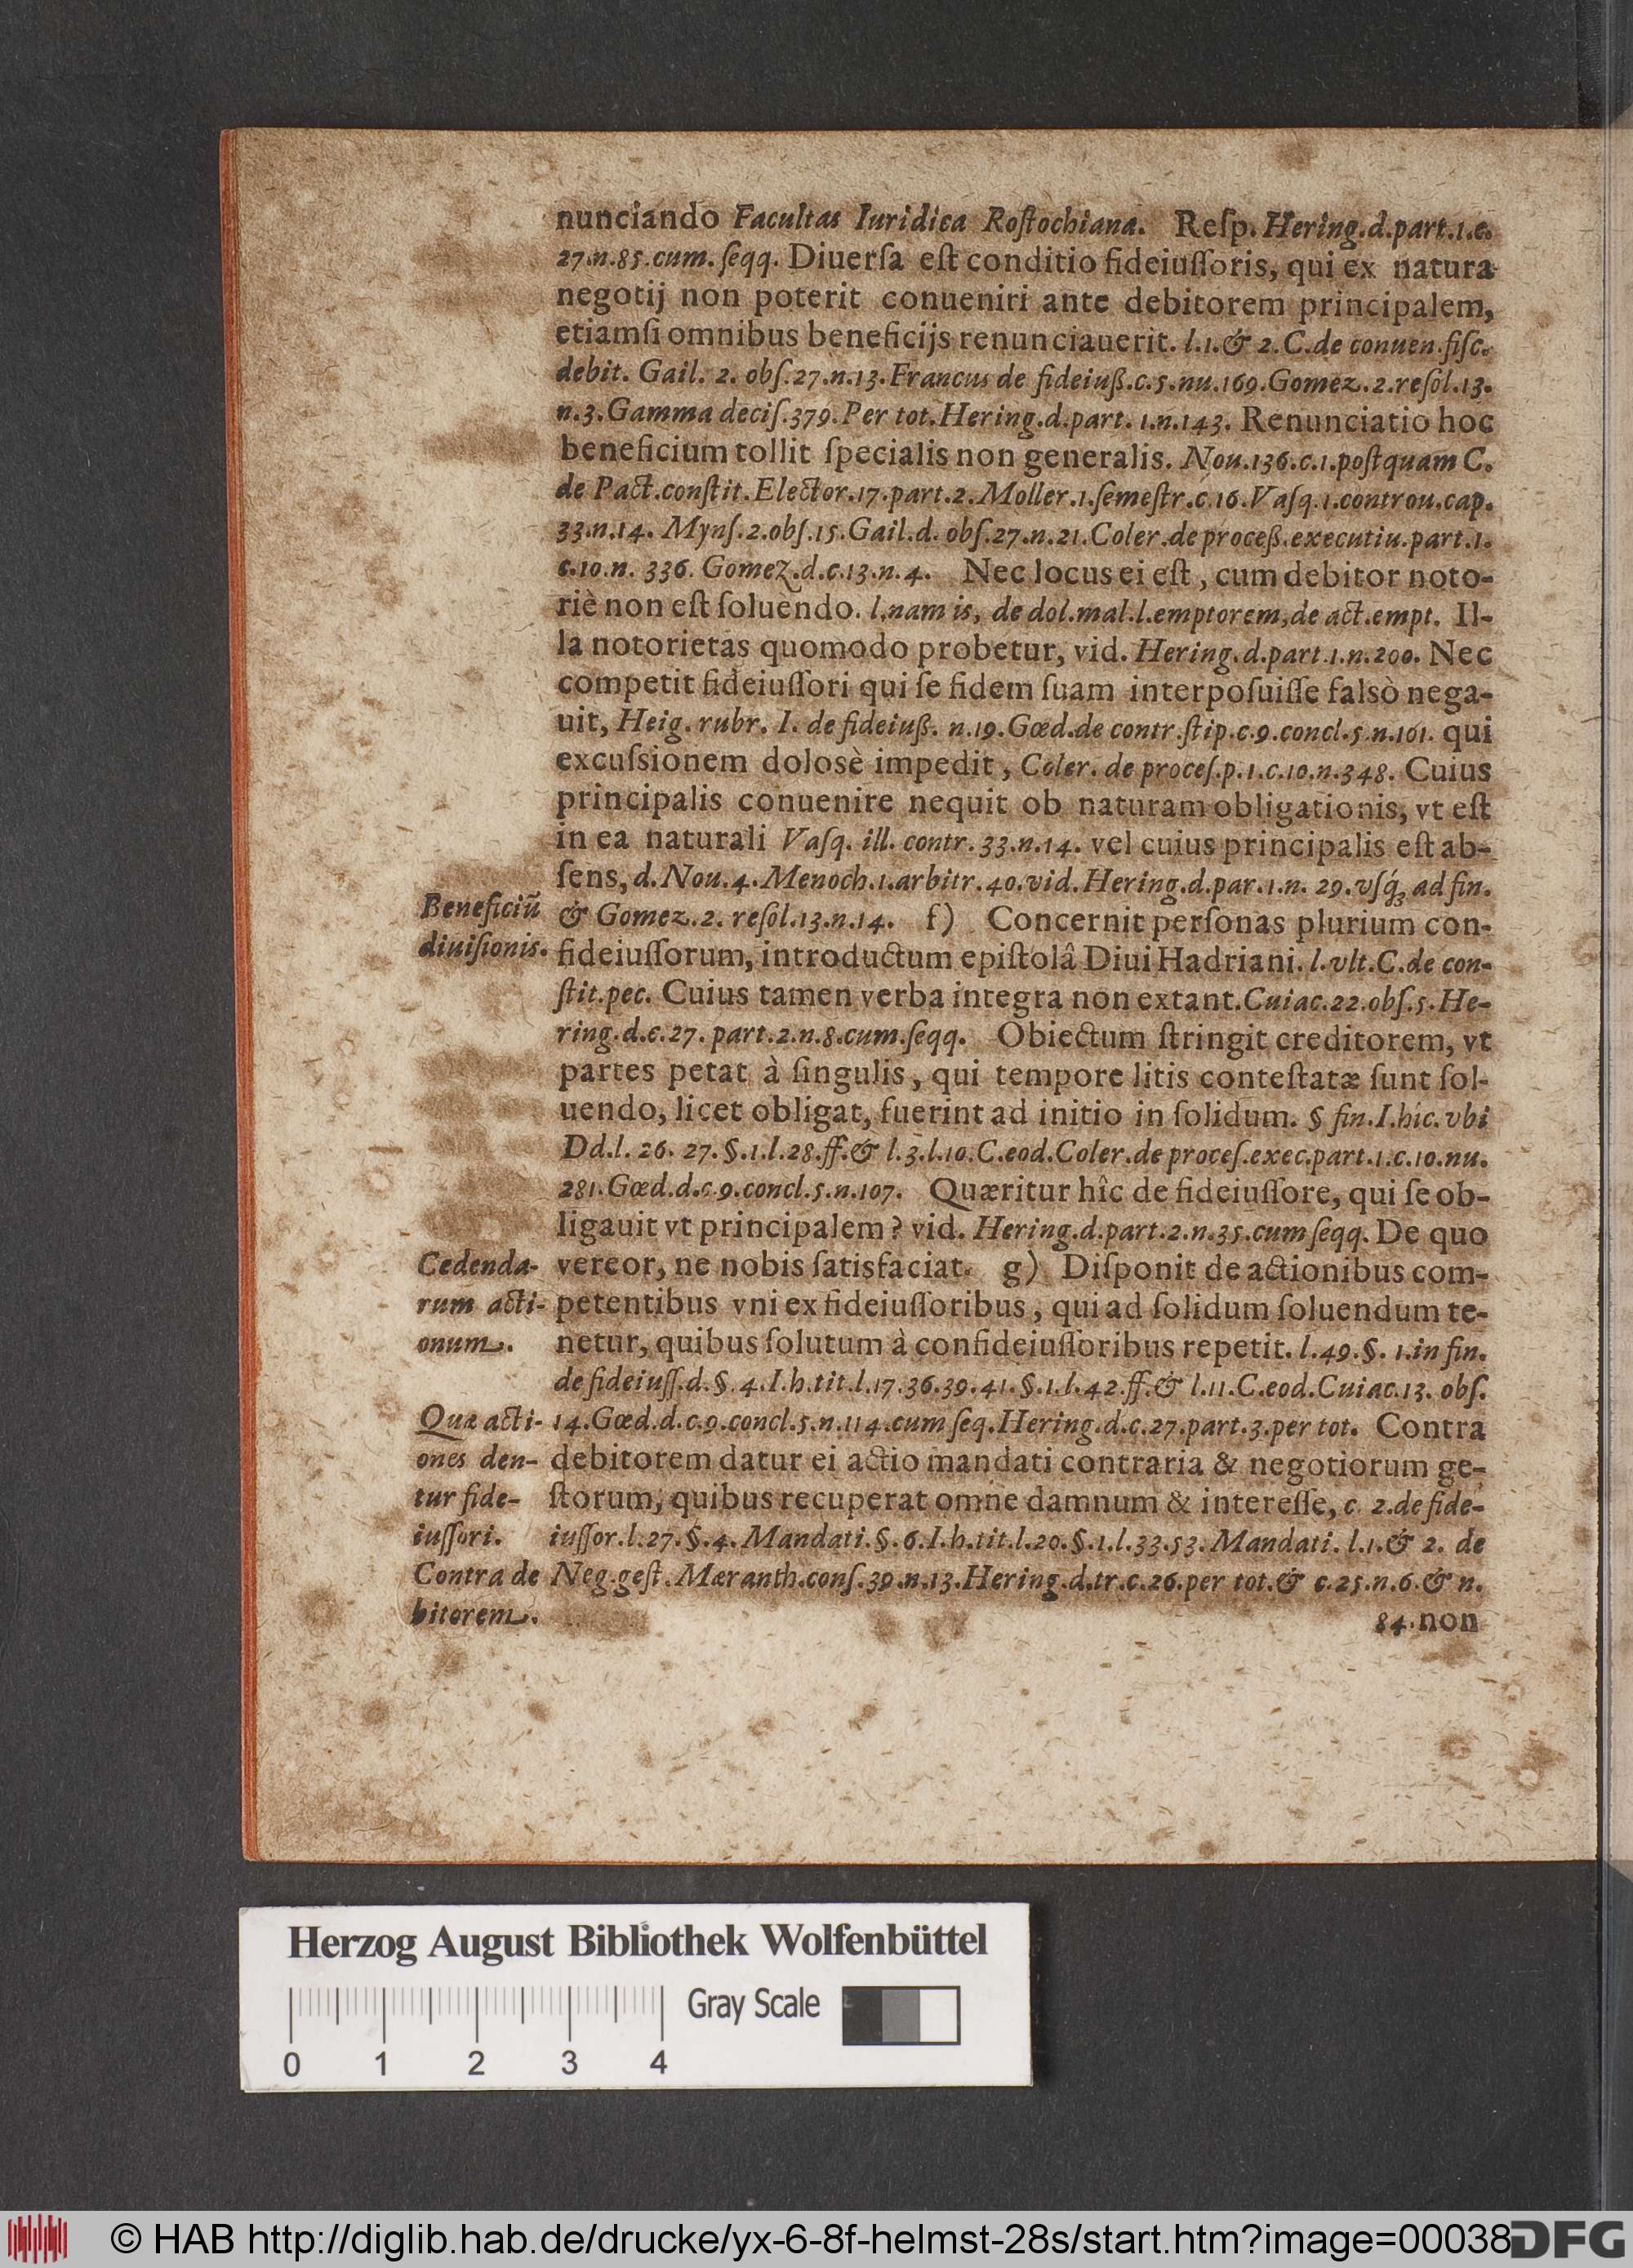 nunciando Facultas Iuridica Roſtochiana. Reſp. Hering.d.part.1.c.
27.n.85.cum.ſeqq. Diuerſa eſt conditio fideiuſſoris, qui ex natura
negotij non poterit conueniri ante debitorem principalem,
etiamſi omnibus beneficijs renunciauerit. l.1.& 2.C.de conuen.fiſc.
debit. Gail. 2. obſ.27.n.13.Francus de fideiuß.c.5.nu.169.Gomez.2.reſol.13.
n.3.Gamma deciſ.379.Per tot.Hering.d.part.1.n.143. Renunciatio hoc
beneficium tollit ſpecialis non generalis. Nou.136.c.1.poſtquam C.
de Pact.conſtit.Elector.17.part.2.Moller.1.ſemeſtr.c.16.Vaſq.1.controu.cap.
33.n.14. Mynſ.2.obſ.15.Gail.d. obſ.27.n.21.Coler.de proceß.executiu.part.1.
c.10.n. 336. Gomez.d.c.13.n.4. Nec locus ei eſt, cum debitor noto-
riè non eſt ſoluendo. l.nam is, de dol.mal.l.emptorem,de act.empt. Il-
la notorietas quomodo probetur, vid. Hering.d.part.1.n.200. Nec
competit fideiuſſori qui ſe fidem ſuam interpoſuiſſe falsò nega-
uit, Heig. rubr. I. de fideiuß. n.19.Gœd.de contr.ſtip.c.9.concl.5.n.101. qui
excuſsionem dolosè impedit, Coler. de proceſ.p.1.c.10.n.348. Cuius
principalis conuenire nequit ob naturam obligationis, vt eſt
in ea naturali Vaſq. ill. contr. 33.n.14. vel cuius principalis eſt ab-
ſens, d.Nou.4.Menoch.1.arbitr.40.vid.Hering.d.par.1.n. 29.vſq́; ad fin.
Beneficiũ
diuiſionis.
& Gomez.2. reſol.13.n.14. f) Concernit perſonas plurium con-
fideiuſſorum, introductum epiſtolâ Diui Hadriani. l.vlt.C.de con-
ſtit.pec. Cuius tamen verba integra non extant.Cuiac.22.obſ.5.He-
ring.d.c.27. part.2.n.8.cum.ſeqq. Obiectum ſtringit creditorem, vt
partes petat à ſingulis, qui tempore litis conteſtatæ ſunt ſol-
uendo, licet obligat, fuerint ad initio in ſolidum. § fin.I.hic.vbi
Dd.l. 26. 27.§.1.l.28.ff.& l.3.l.10.C.eod.Coler.de proceſ.exec.part.1.c.10.nu.
281.Gœd.d.c.9.concl.5.n.107. Quæritur hîc de fideiuſſore, qui ſe ob-
ligauit vt principalem? vid. Hering.d.part.2.n.35.cum ſeqq. De quo
Cedenda-
rum acti-
onum.
vereor, ne nobis ſatisfaciat. g) Diſponit de actionibus com-
petentibus vni ex fideiuſſoribus, qui ad ſolidum ſoluendum te-
netur, quibus ſolutum à confideiuſſoribus repetit. l.49.§. 1.in fin.
de fideiuſſ.d.§.4.I.h.tit.l.17.36.39.41.§.1.l.42.ff.& l.11.C.eod.Cuiac.13. obſ.
Quæ acti-
ones den-
tur fide-
iuſſori.
Contra de
bitorem.
14.Gœd.d.c.9.concl.5.n.114.cum ſeq.Hering.d.c.27.part.3.per tot. Contra
debitorem datur ei actio mandati contraria & negotiorum ge-
ſtorum, quibus recuperat omne damnum & intereſſe, c. 2.de fide-
iuſſor.l.27.§.4.Mandati.§.6.I.h.tit.l.20.§.1.l.33.53.Mandati.l.1.& 2. de
Neg.geſt.Mæranth.conſ.39.n.13.Hering.d.tr.c.26.per tot.& c.25.n.6.& n.
84.non
Herzog August Bibliothek Wolfenbüttel
Gray Scale
0 1 2 3 4
© HAB http://diglib.hab.de/drucke/yx-6-8f-helmst-28s/start.htm?image=00038
DFG